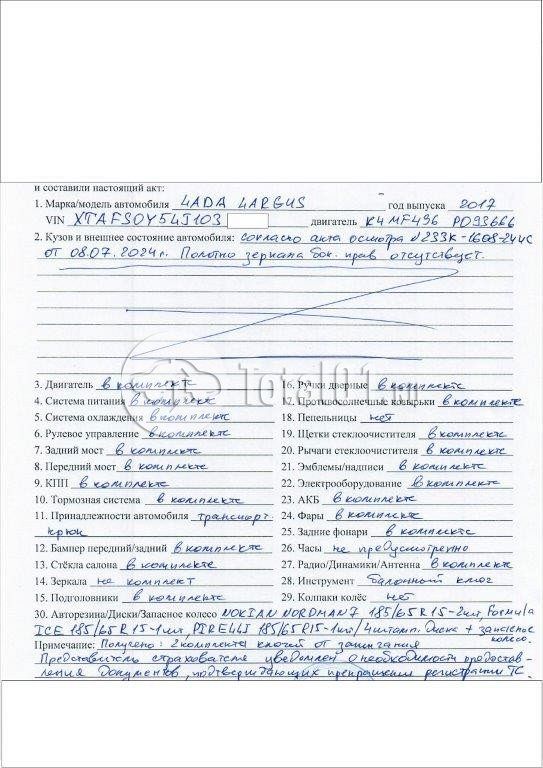 и составили настоящий акт:
1. Марка/модель автомобиля LADA LARGUS год выпуска 2017
VIN XTAFS0Y54J103 двигатель K4MF496 P093666
2. Кузов и внешнее состояние автомобиля: согласно акта осмотра
от 08.07.2024 г. Полотно зеркала бок. прав отсутствует.
3. Двигатель в комплекте
4. Система питания в комплекте
5. Система охлаждения в комплекте
6. Рулевое управление в комплекте
7. Задний мост в комплекте
8. Передний мост в комплекте
9. КПП в комплекте
10. Тормозная система в комплекте
11. Принадлежности автомобиля транспорт.
крюк
12. Бампер передний/задний в комплекте
13. Стёкла салона в комплекте
14. Зеркала не комплект
15. Подголовники в комплекте
16. Ручки дверные в комплекте
17. Противосолнечные козырьки в комплекте
18. Пепельницы нет
19. Щетки стеклоочистителя в комплекте
20. Рычаги стеклоочистителя в комплекте
21. Эмблемы/надписи в комплекте
22. Электрооборудование в комплекте
23. АКБ в комплекте
24. Фары в комплекте
25. Задние фонари в комплекте
26. Часы не предусмотрено
27. Радио/Динамики/Антенна в комплекте
28. Инструмент балонный ключ
29. Колпаки колёс нет
30. Авторезина/Диски/Запасное колесо NOKIAN NORDMAN 7 185/65 R15-2шт, Formula
ICE 185/65 R15-1шт, PIRELLI 185/65 R15-1шт/ 4 штамп. диска + запасное
колесо.
Примечание: Получено: 2 комплекта ключей от зажигания
Представитель страхователя уведомлен о необходимости предостав-
ления документов, подтверждающих прекращение регистрации ТС.
Total01.ru